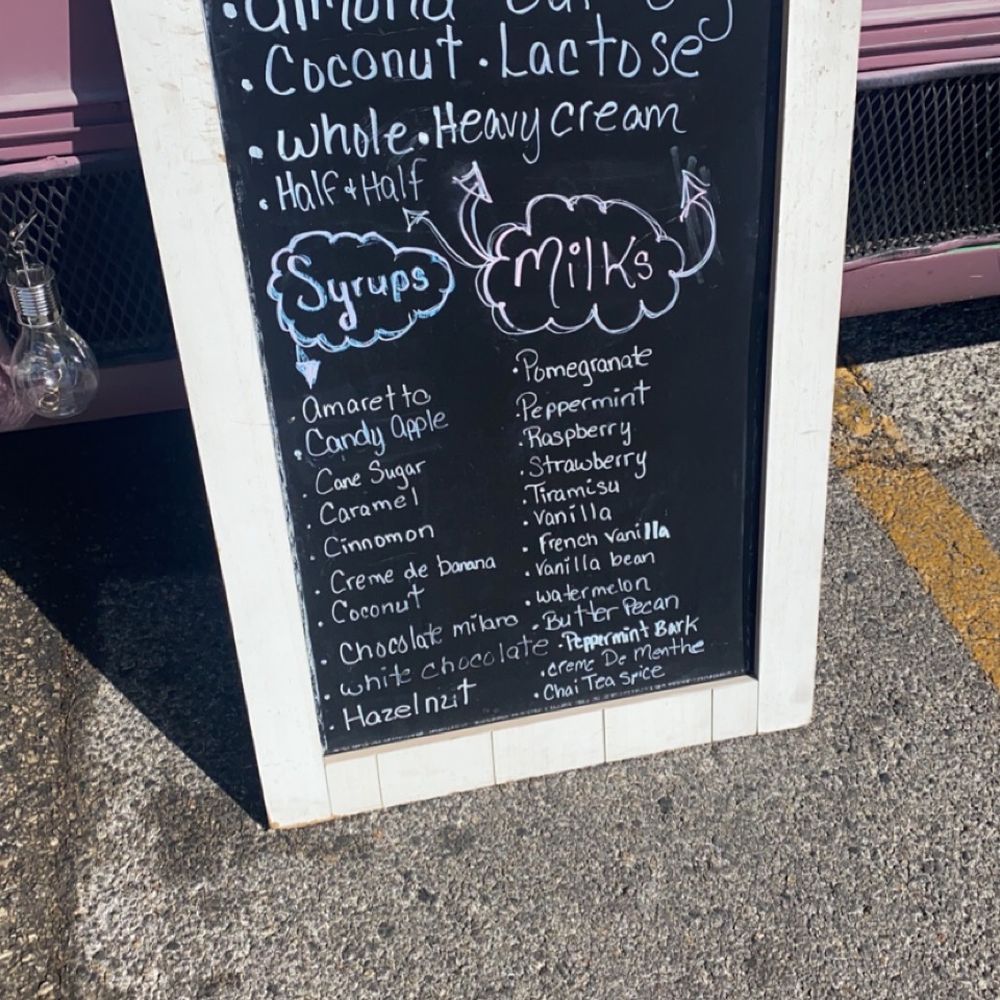 · almond
· Coconut · Lactose
· whole · Heavy cream
· Half + Half
Milks
Syrups
· Amaretto
· Candy Apple
· Cane Sugar
· Caramel
· Cinnomon
· Creme de banana
· Coconut
· Chocolate milano
· white chocolate
· Hazelnut
· Pomegranate
· Peppermint
· Raspberry
· Strawberry
· Tiramisu
· Vanilla
· French vanilla
· Vanilla bean
· watermelon
· Butter Pecan
· Peppermint Bark
· creme De Menthe
· Chai Tea Spice